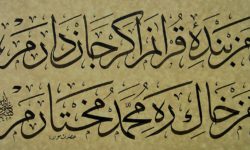 من بنده قرآنم اگر جان دارم
من خاک ره محمد مختارم